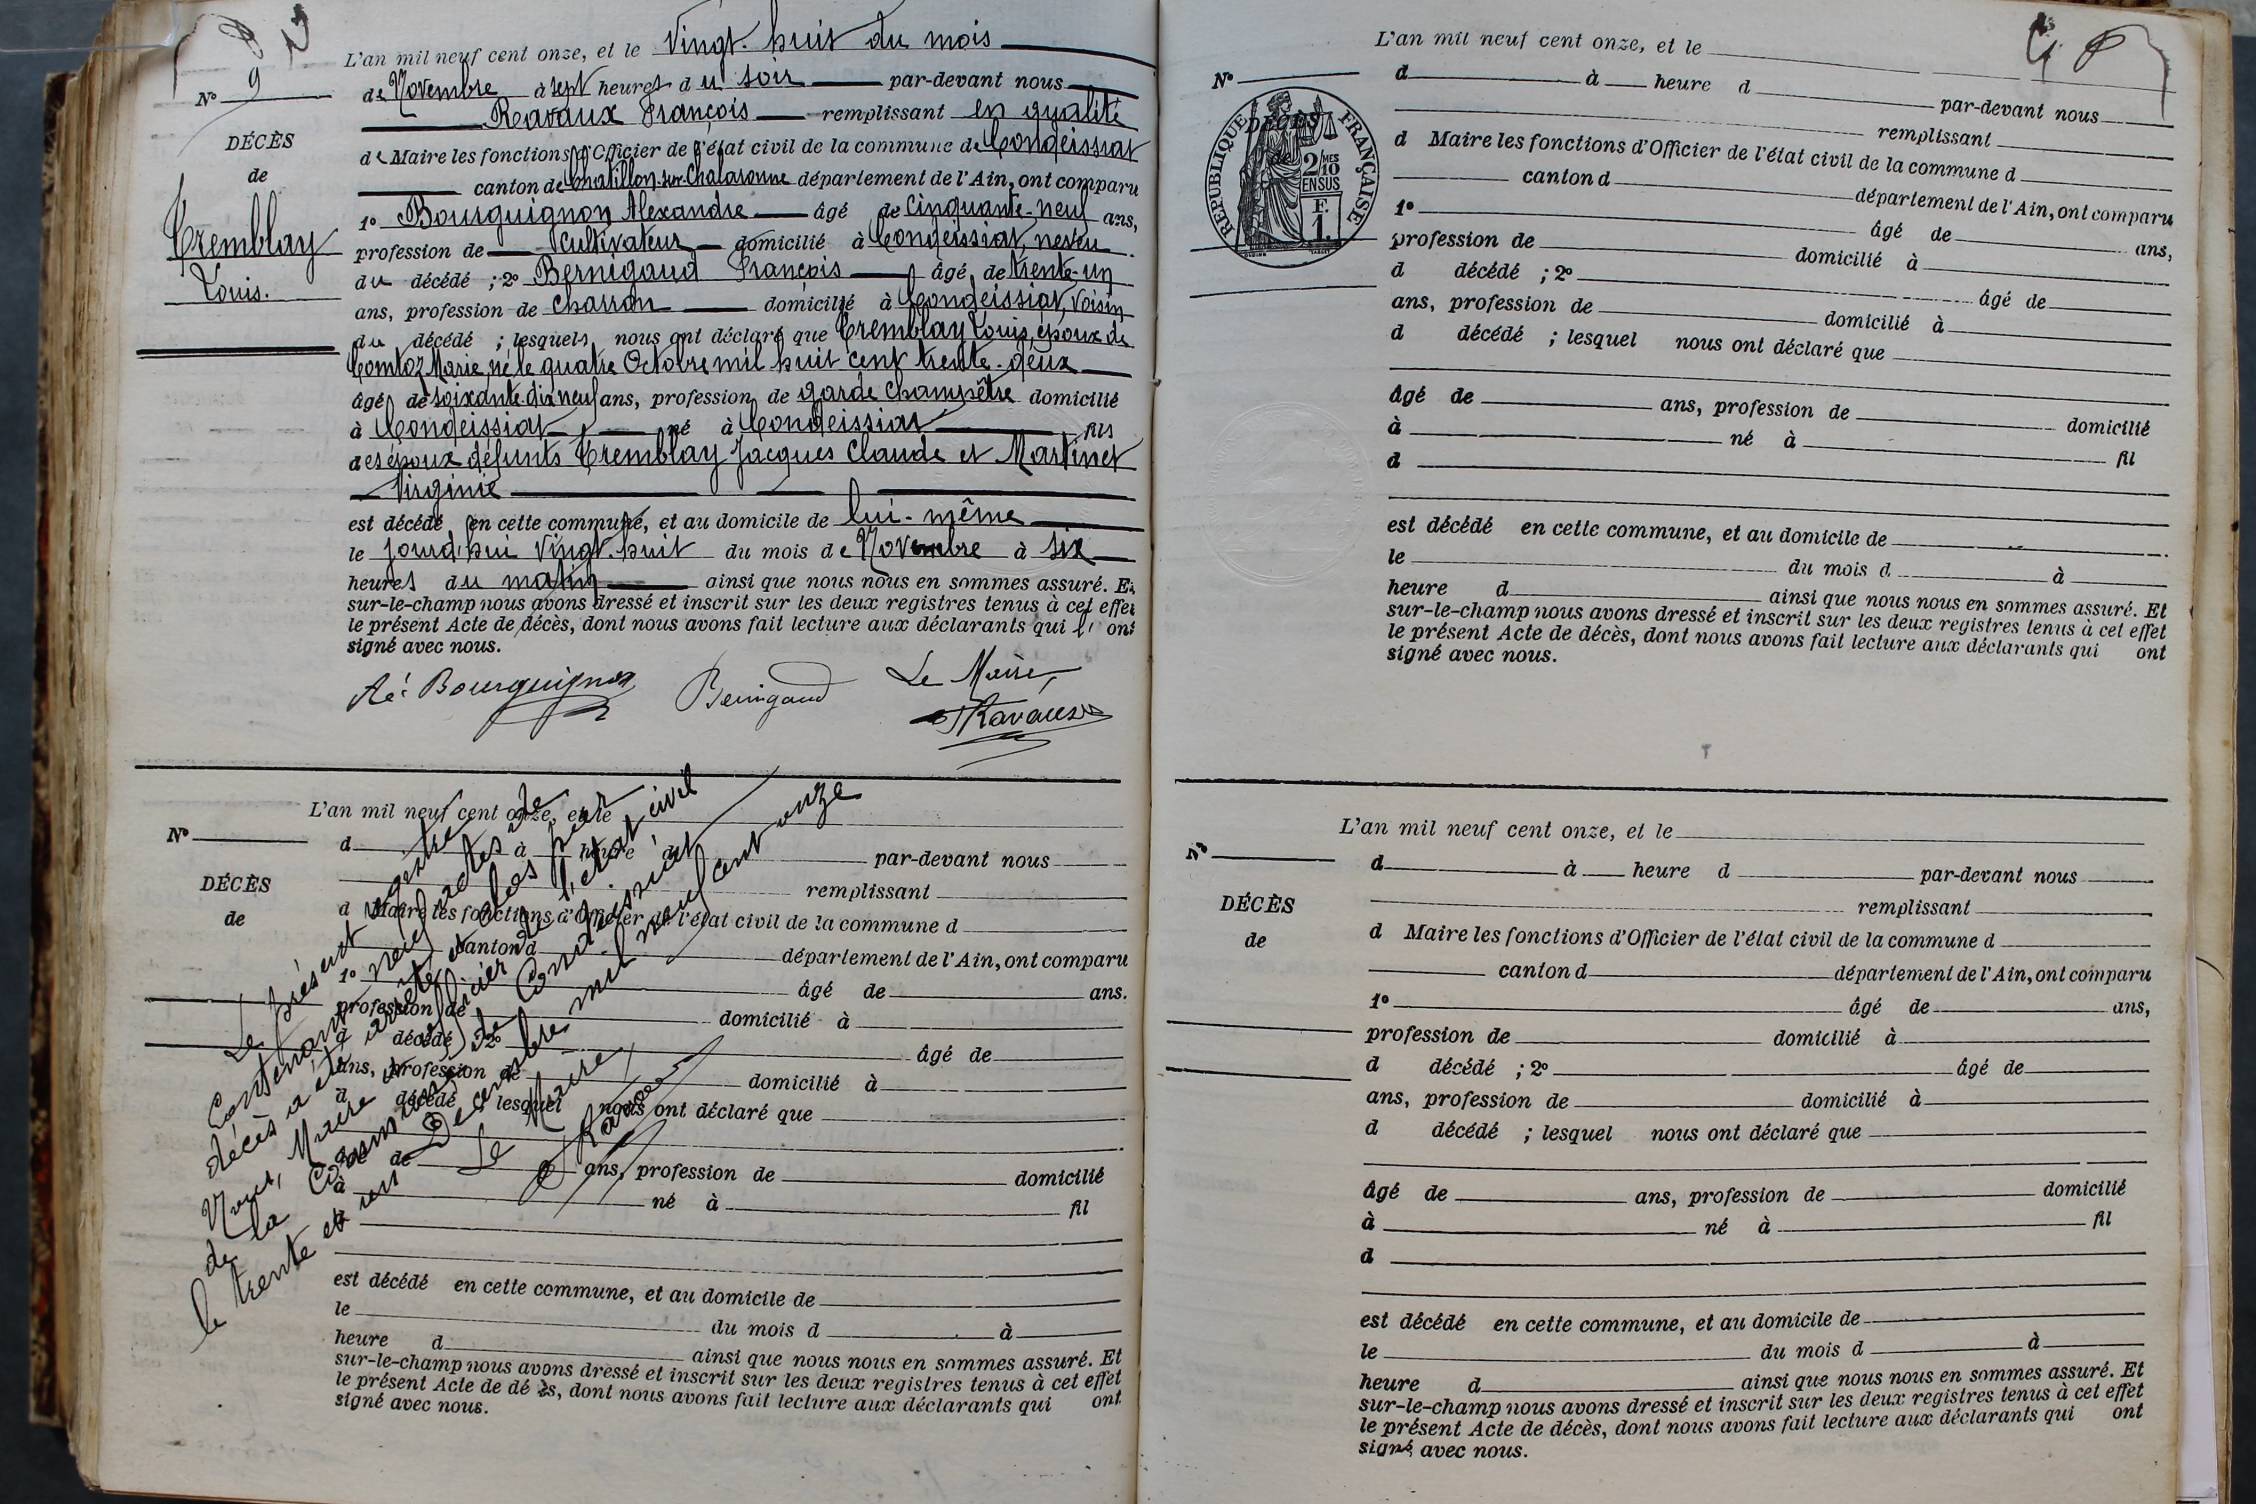 L'an mil neuf cent onze, et le Vingt-huit du mois
N° 9
de Novembre à sept heures du soir par-devant nous
Ravaux François remplissant en qualité
DÉCÈS
de Maire les fonctions d'Officier de l'état civil de la commune de Condeissiat
de
canton de Chatillon-sur-Chalaronne département de l'Ain, ont comparu
1° Bourguignon Alexandre âgé de cinquante-neuf ans,
Tremblay
profession de cultivateur domicilié à Condeissiat, neveu
Louis.
du décédé ; 2° Bernigaud François âgé de trente-un
ans, profession de charron domicilié à Condeissiat, voisin
du décédé ; lesquels nous ont déclaré que Tremblay Louis, époux de
Comtoz Marie, né le quatre Octobre mil huit cent trente-deux
âgé de soixante-dix neuf ans, profession de garde champêtre domicilié
à Condeissiat né à Condeissiat fils
des époux défunts Tremblay Jacques Claude et Martinet
Virginie
est décédé en cette commune, et au domicile de lui-même
le jourd'hui vingt-huit du mois de Novembre à six
heures du matin ainsi que nous nous en sommes assuré. Et
sur-le-champ nous avons dressé et inscrit sur les deux registres tenus à cet effet
le présent Acte de décès, dont nous avons fait lecture aux déclarants qui l' ont
signé avec nous.
Bourguignon Bernigaud Le Maire,
Ravaux
L'an mil neuf cent onze, et le
N°
d à heure d par-devant nous
DÉCÈS
remplissant
de
d Maire les fonctions d'Officier de l'état civil de la commune d
canton d département de l'Ain, ont comparu
1° âgé de ans.
profession de domicilié à
d décédé ; 2° âgé de
ans, profession de domicilié à
d décédé ; lesquel nous ont déclaré que
âgé de ans, profession de domicilié
à né à fil
d
est décédé en cette commune, et au domicile de
le du mois d à
heure d ainsi que nous nous en sommes assuré. Et
sur-le-champ nous avons dressé et inscrit sur les deux registres tenus à cet effet
le présent Acte de décès, dont nous avons fait lecture aux déclarants qui ont
signé avec nous.
Le présent registre
contenant neuf actes de
décès a été arrêté et clos par
Nous, Maire et officier de l'état civil
de la Commune de Condeissiat
le trente et un Décembre mil neuf cent onze
Le Maire,
Ravaux
L'an mil neuf cent onze, et le
N°
d à heure d
par-devant nous
remplissant
RÉPUBLIQUE FRANÇAISE
DÉCÈS
de
2/10 MES
EN SUS
F.
1.
d Maire les fonctions d'Officier de l'état civil de la commune d
canton d département de l'Ain, ont comparu
1° âgé de ans,
profession de domicilié à
d décédé ; 2° âgé de
ans, profession de domicilié à
d décédé ; lesquel nous ont déclaré que
âgé de ans, profession de domicilié
à né à fil
d
est décédé en cette commune, et au domicile de
le du mois d à
heure d ainsi que nous nous en sommes assuré. Et
sur-le-champ nous avons dressé et inscrit sur les deux registres tenus à cet effet
le présent Acte de décès, dont nous avons fait lecture aux déclarants qui ont
signé avec nous.
L'an mil neuf cent onze, et le
N°
d à heure d par-devant nous
DÉCÈS
remplissant
de
d Maire les fonctions d'Officier de l'état civil de la commune d
canton d département de l'Ain, ont comparu
1° âgé de ans,
profession de domicilié à
d décédé ; 2° âgé de
ans, profession de domicilié à
d décédé ; lesquel nous ont déclaré que
âgé de ans, profession de domicilié
à né à fil
d
est décédé en cette commune, et au domicile de
le du mois d à
heure d ainsi que nous nous en sommes assuré. Et
sur-le-champ nous avons dressé et inscrit sur les deux registres tenus à cet effet
le présent Acte de décès, dont nous avons fait lecture aux déclarants qui ont
signé avec nous.